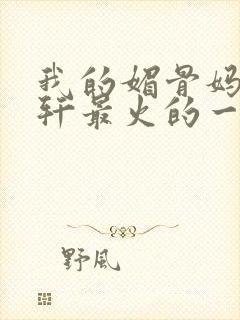 我的媚骨妈
轩最火的一
野風